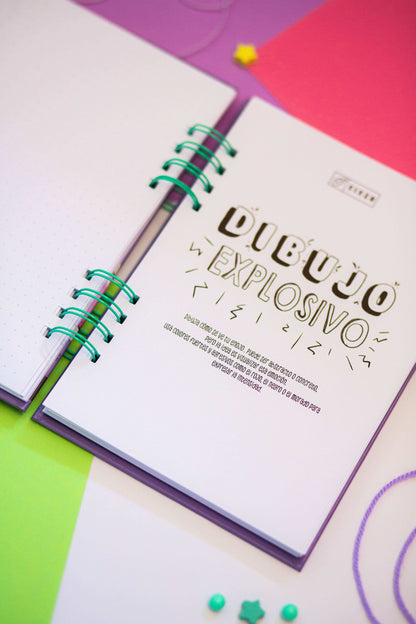 DIBUJO
EXPLOSIVO
Dibuja cómo se ve tu enojo. Puede ser abstracto o concreto,
pero la idea es visualizar esta emoción.
Usa colores fuertes y agresivos como el rojo, el negro o el morado para
expresar la intensidad.